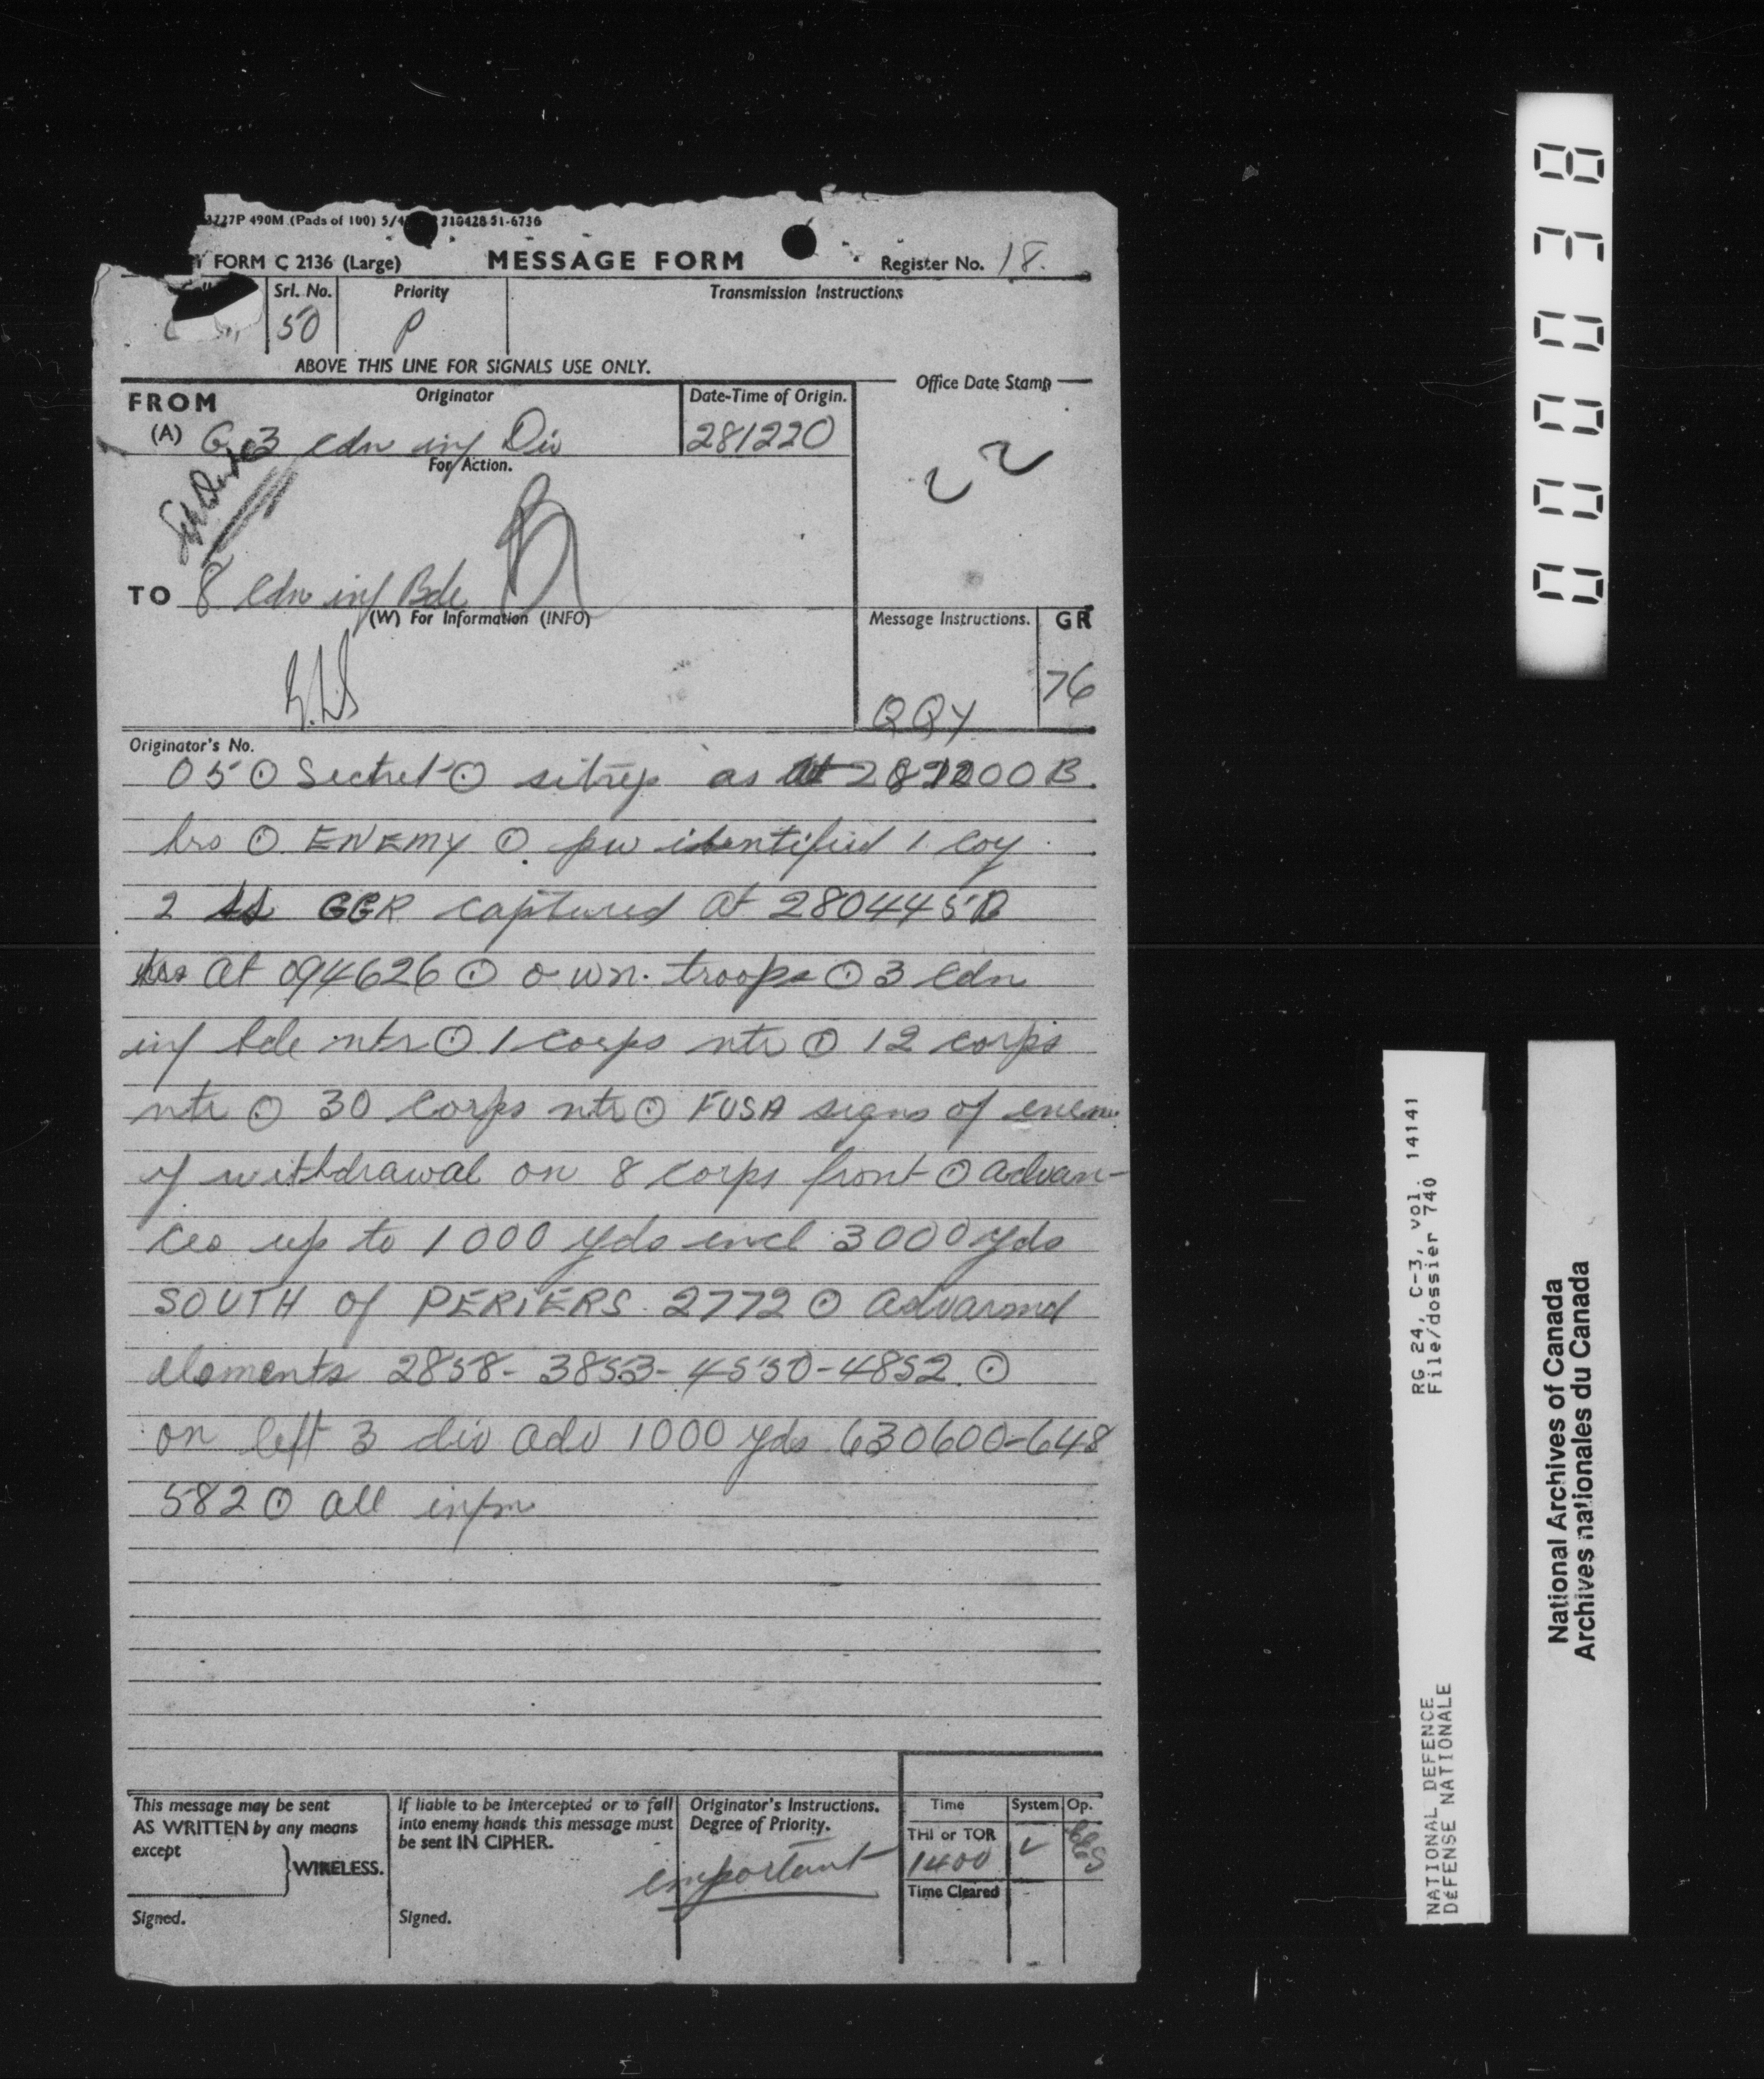 3727P 490M (Pads of 100) 5/4 710428 51-6736
FORM C 2136 (Large) MESSAGE FORM Register No. 18.
Srl. No. Priority Transmission Instructions
50 P
ABOVE THIS LINE FOR SIGNALS USE ONLY.
FROM Originator Date-Time of Origin. Office Date Stamp
(A) G 3 Cdn inf Div 281220
For Action.
22
TO 8 Cdn inf Bde
(W) For Information (INFO) Message Instructions. GR
QQY 76
Originator's No.
050 Sectret ⊙ sitrep as at 281200 B
hrs ⊙ ENEMY ⊙ pw identified 1 coy
2 SS GGR captured at 280445B
hrs at 094626 ⊙ own troops ⊙ 3 Cdn
inf bde ntr ⊙ 1 corps ntr ⊙ 12 corps
ntr ⊙ 30 corps ntr ⊙ FUSA signs of enem
y withdrawal on 8 corps front ⊙ advan-
ces up to 1000 yds incl 3000 yds
SOUTH of PERIERS 2772 ⊙ advarmd
elements 2858 - 3853 - 4550 - 4852 ⊙
on left 3 div adv 1000 yds 630600-648
582 ⊙ all infm
This message may be sent
AS WRITTEN by any means
except
WIRELESS.
Signed.
If liable to be intercepted or to fall
into enemy hands this message must
be sent IN CIPHER.
Signed.
Originator's Instructions.
Degree of Priority.
important
Time System Op.
THI or TOR
1400
Time Cleared
0000038
RG 24, C-3, vol. 14141
File/dossier 740
NATIONAL DEFENCE
DÉFENSE NATIONALE
National Archives of Canada
Archives nationales du Canada